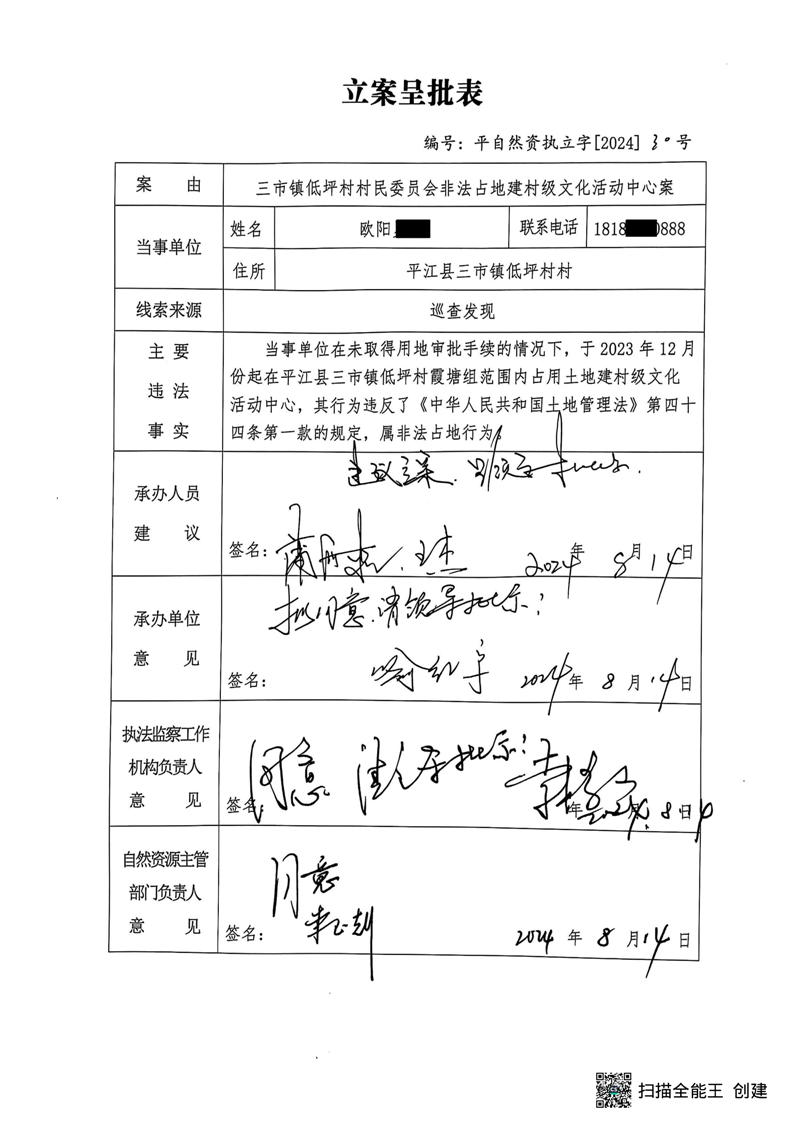 立案呈批表
编号：平自然资执立字[2024] 30 号
案 由
三市镇低坪村村民委员会非法占地建村级文化活动中心案
当事单位
姓名
欧阳
联系电话
1818 0888
住所
平江县三市镇低坪村村
线索来源
巡查发现
主 要
违 法
事 实
当事单位在未取得用地审批手续的情况下，于 2023 年 12 月
份起在平江县三市镇低坪村霞塘组范围内占用土地建村级文化
活动中心，其行为违反了《中华人民共和国土地管理法》第四十
四条第一款的规定，属非法占地行为。
承办人员
建 议
建议立案
签名：
2024年 8月14日
承办单位
意 见
拟同意，请领导批示！
签名：
2024年 8月14日
执法监察工作
机构负责人
意 见
同意
签名：
2024年 8月 日
自然资源主管
部门负责人
意 见
同意
签名：
2024 年 8 月14日
扫描全能王 创建